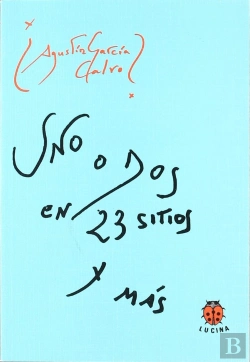 Agustín García
Calvo
UNO O DOS
en 23 SITIOS
y MÁS
LUCINA
B